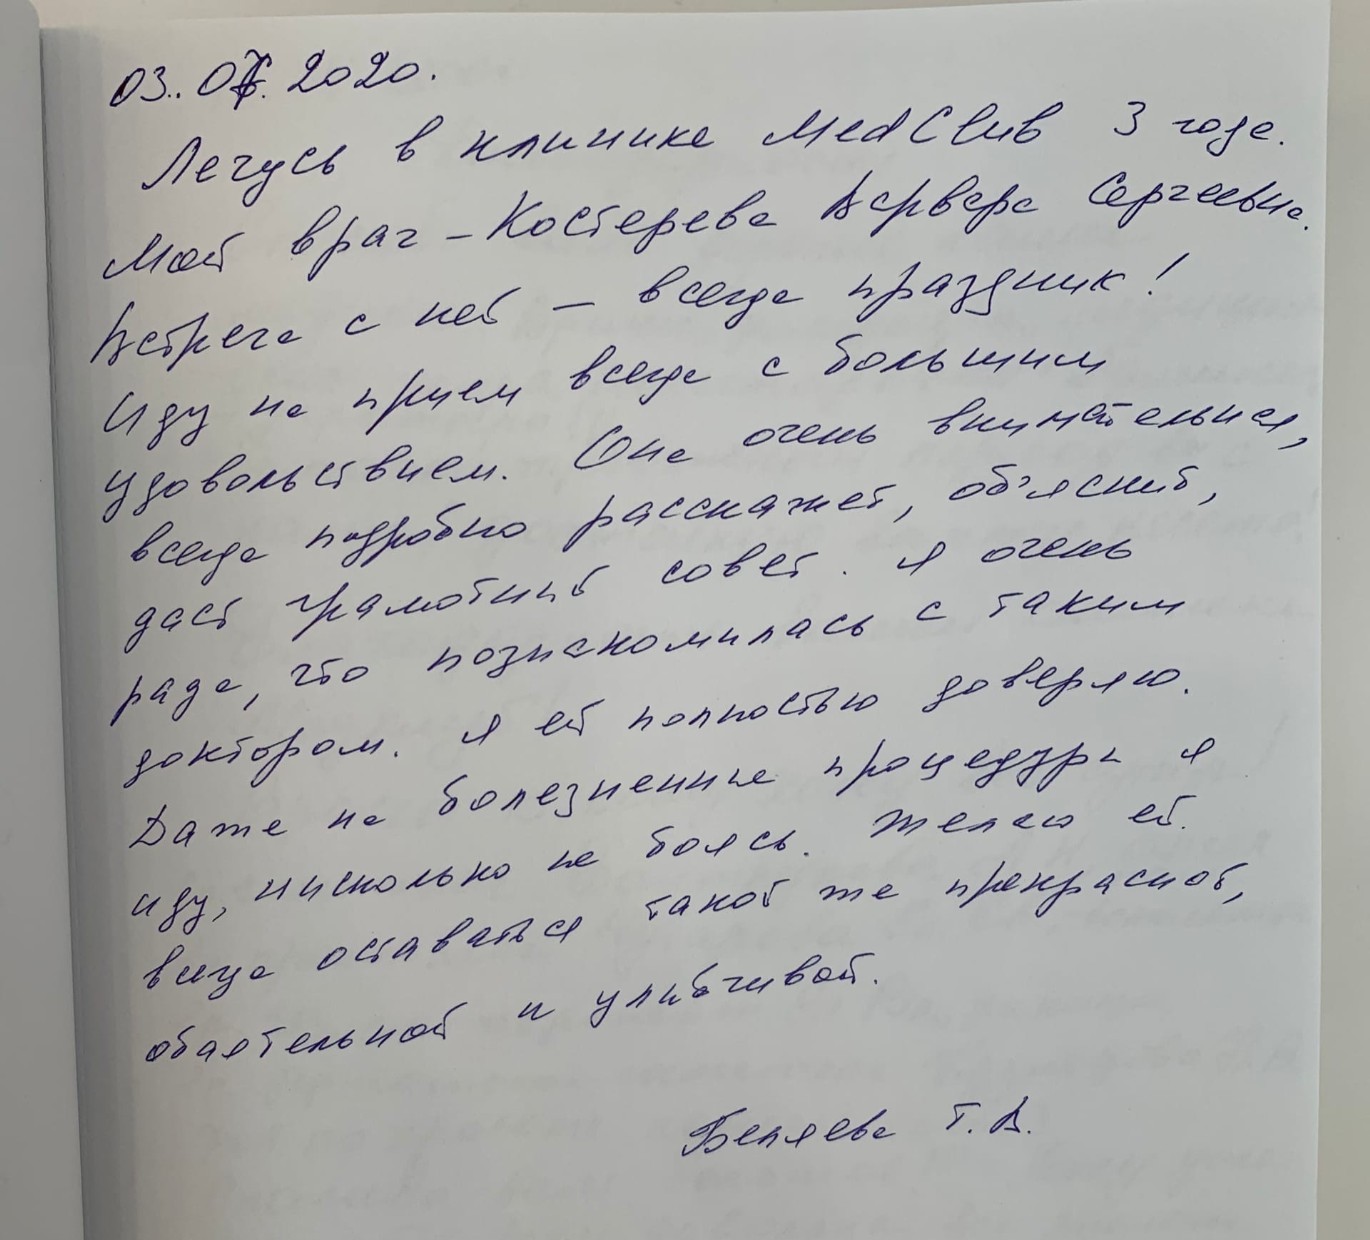 03.07.2020.
Лечусь в клинике MedClub 3 года.
Мой врач – Костерева Варвара Сергеевна.
Встреча с ней – всегда праздник!
Иду на прием всегда с большим
удовольствием. Она очень внимательная,
всегда подробно расскажет, об'яснит,
даст грамотный совет. Я очень
рада, что познакомилась с таким
доктором. Я ей полностью доверяю.
Даже на болезненные процедуры я
иду, нисколько не боясь. Желаю ей
всегда оставаться такой же прекрасной,
обаятельной и улыбчивой.
Беляева Т.В.